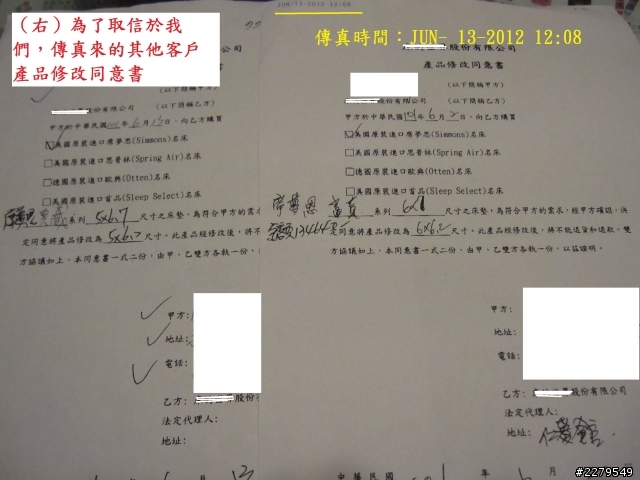 JUN/13-2012 12:08
(右)為了取信於我
們，傳真來的其他客戶
產品修改同意書
傳真時間：JUN- 13-2012 12:08
股份有限公司
(以下簡稱甲方)
股份有限公司 (以下簡稱乙方)
甲方於中華民國 年6月13日，向乙方購買
美國原裝進口席夢思(Simmons)名床
□美國原裝進口思普林(Spring Air)名床
□德國原裝進口歐典(Otten)名床
□美國原裝進口首品(Sleep Select)名床
系列 5x6.7 尺寸之床墊，為符合甲方的需求
定同意將產品修改為 5x6.2 尺寸。此產品經修改後，將不
方協議如上，本同意書一式二份，由甲、乙雙方各執一份，
甲方：
地址：
電話：
乙方： 股份
法定代理人：
地址：
6 13
產品修改同意書
(以下簡稱甲方)
股份有限公司 (以下簡稱乙方)
甲方於中華民國101年6月2日，向乙方購買
美國原裝進口席夢思(Simmons)名床
□美國原裝進口思普林(Spring Air)名床
□德國原裝進口歐典(Otten)名床
□美國原裝進口首品(Sleep Select)名床
席夢思 系列 尺寸之床墊，為符合甲方的需求，經甲方確認，決
定同意將產品修改為 6x6.2 尺寸。此產品經修改後，將不能退貨和退款。雙
方協議如上，本同意書一式二份，由甲、乙雙方各執一份，以茲證明。
甲方：
地址：
電話：
乙方： 股份有限公司
法定代理人：
地址：
中華民國 年 6 月
#2279549